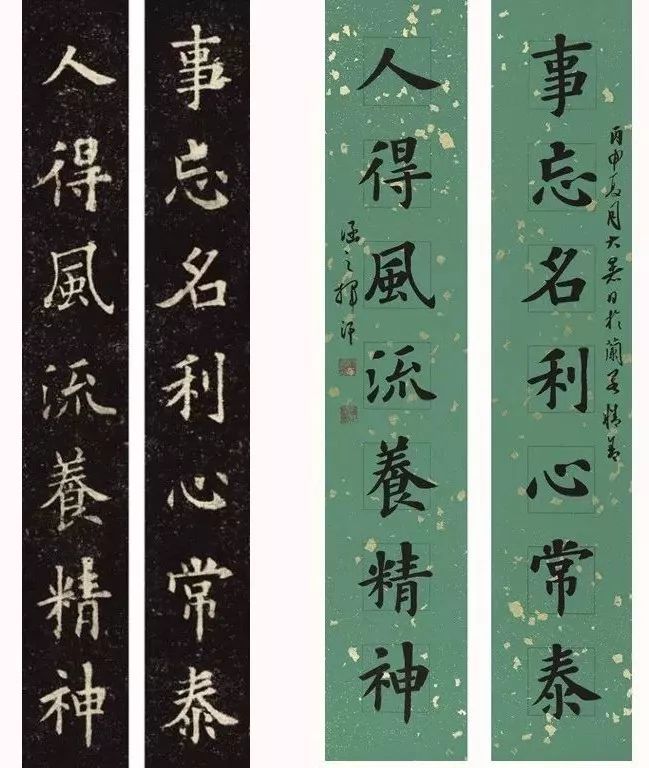 事忘名利心常泰
人得風流養精神
丙申夏月大暑日於蘭若精舍
事忘名利心常泰
人得風流養精神
之揮汗